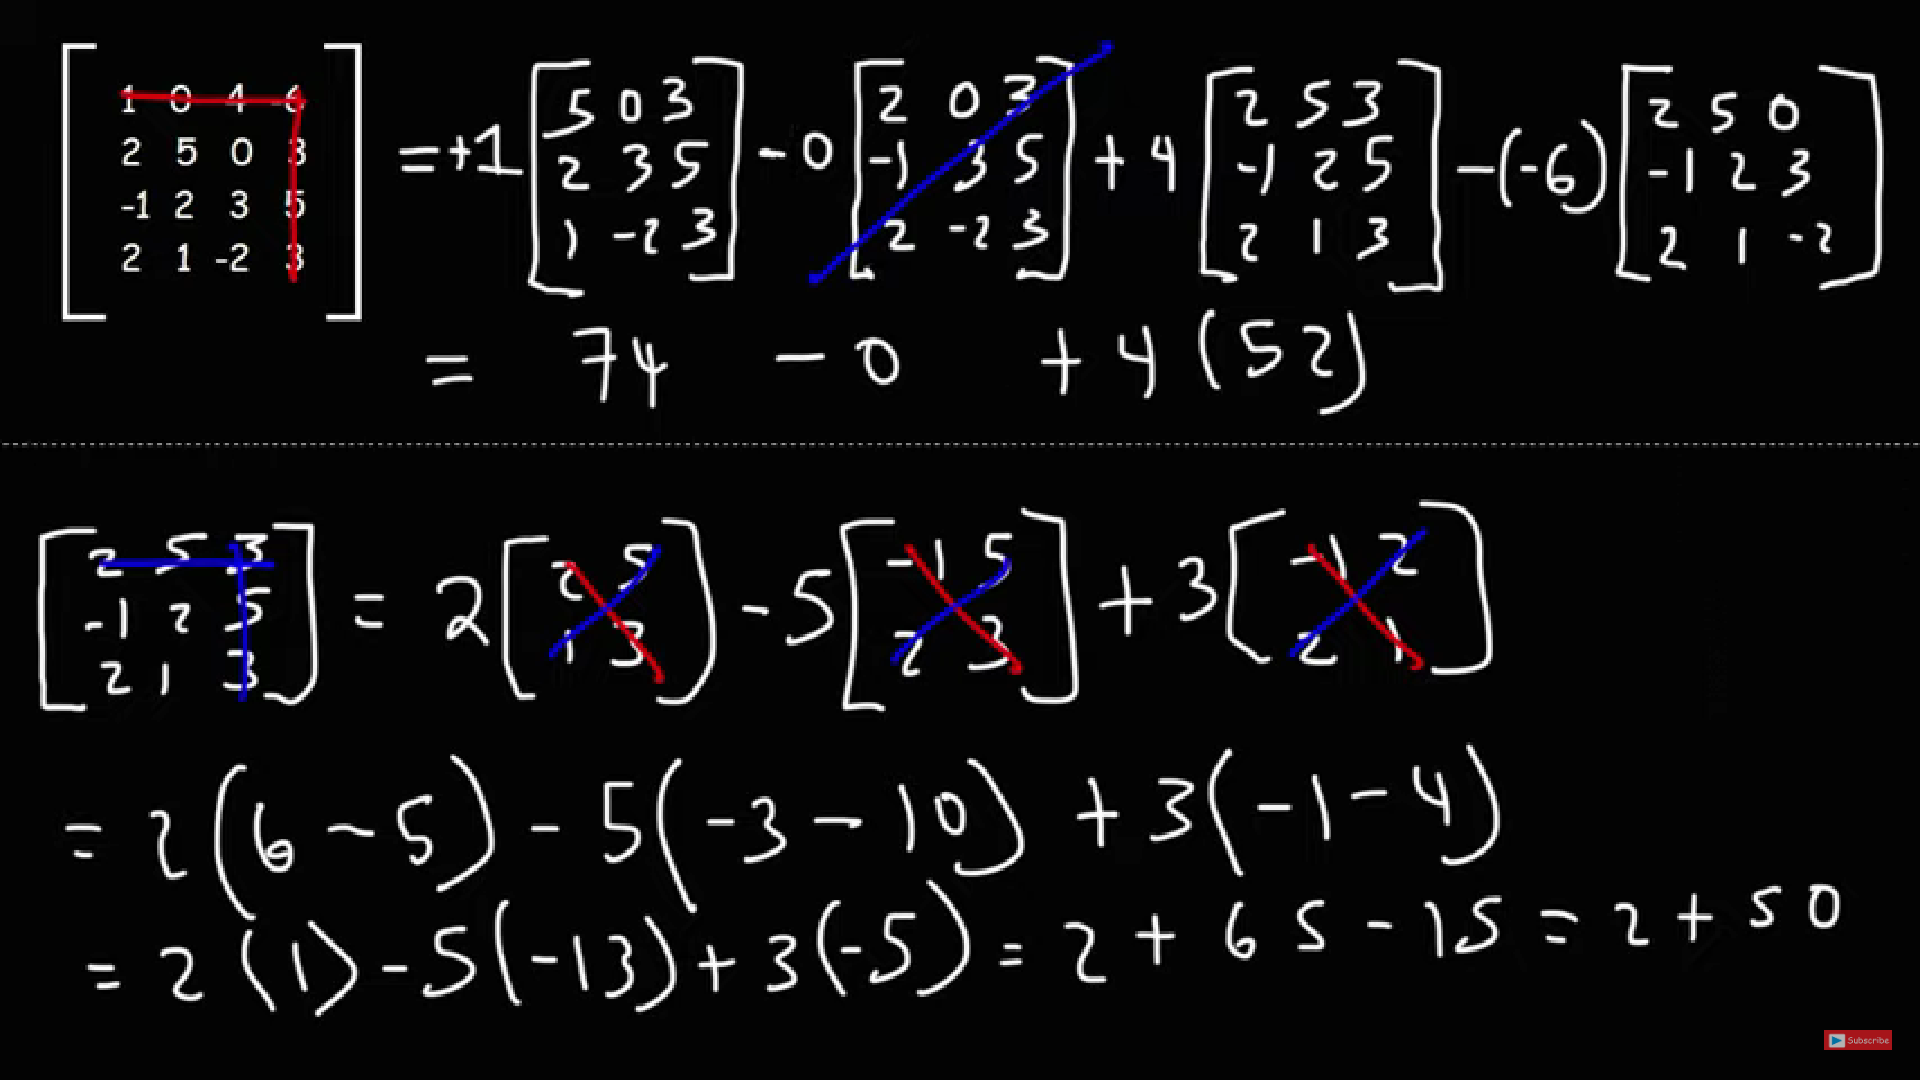 [1 0 4 -6
2 5 0 3
-1 2 3 5
2 1 -2 3]
=+1[5 0 3
2 3 5
1 -2 3]
-0[2 0 3
-1 3 5
2 -2 3]
+4[2 5 3
-1 2 5
2 1 3]
-(-6)[2 5 0
-1 2 3
2 1 -2]
= 74 -0 +4(52)
[2 5 3
-1 2 5
2 1 3]
= 2[2 5
1 3]
-5[-1 5
2 3]
+3[-1 2
2 1]
= 2(6-5) -5(-3-10) +3(-1-4)
= 2(1)-5(-13)+3(-5) = 2+65-15 = 2+50
Subscribe